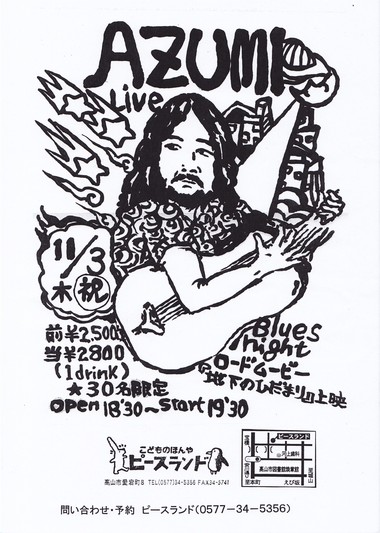 AZUMI
Live
11/3
木 祝
前¥2,500
当¥2800
(1drink)
★30名限定
open 18'30~Start 19'30
Blues
night
ロードムービー
地下のひだまり上映
こどものほんや
ピースランド
高山市愛宕町8 TEL(0577)34-5356 FAX34-5741
ピースランド
川上歯科
高山市図書館煥章館
えび坂
至本町
問い合わせ・予約 ピースランド(0577-34-5356)